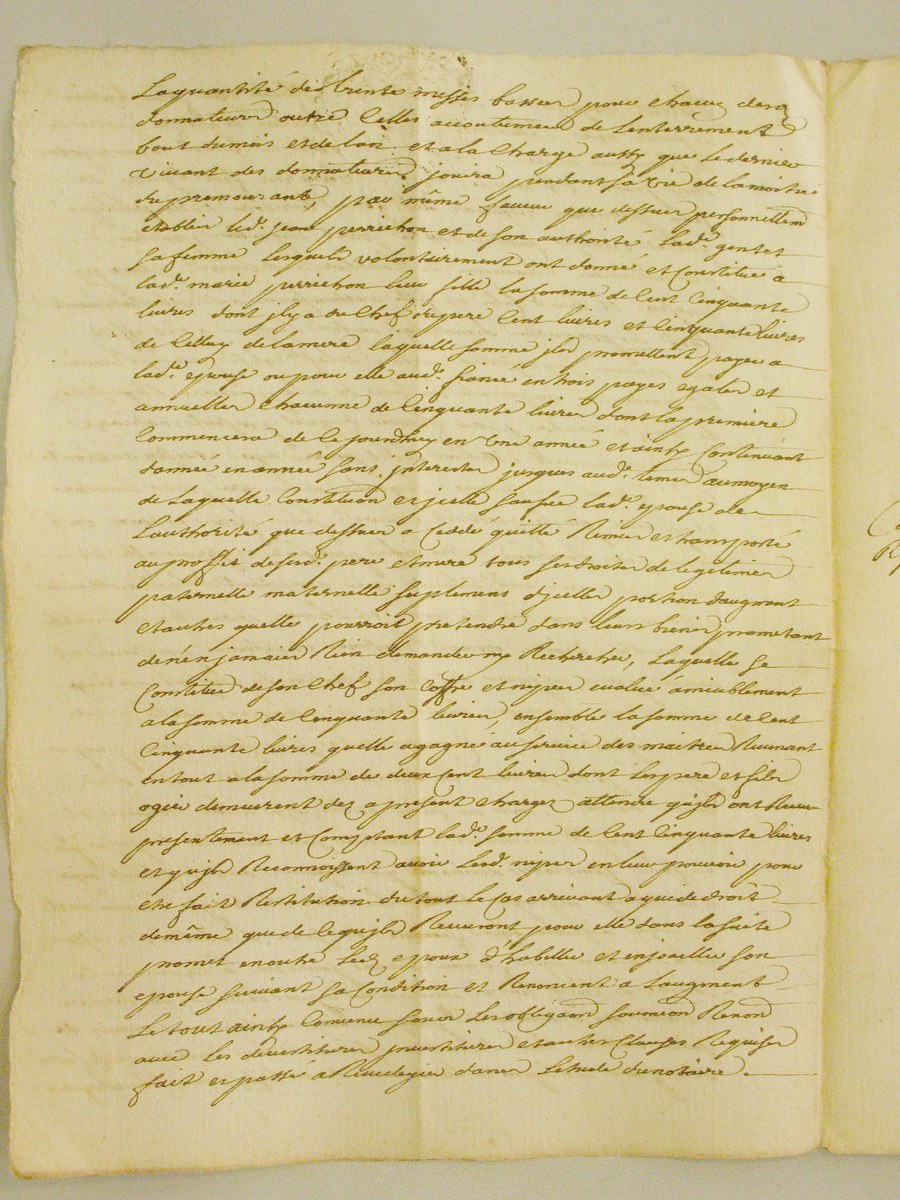 La quantité de trente messes basses pour chacun desd
donnateurs outre celles accoutumees de lenterrement
bout dumois et de lan et a la charge aussy que le dernier
vivant des donnateurs jouira pendant sa vie de la moitié
du premourant, par même faveur que dessus personnellem
etablis led. jean perrichon et de son authorité lad.e gentet
sa femme lesquels volontairement ont donné et constitué a
lad.e marie perrichon leur fille la somme de cent cinquante
livres dont jl y a du chef du pere cent livres et cinquante livres
de celluy de la mere laquelle somme jls promettent payer a
lad.e epouse ou pour elle aud. fiancé en trois payes egales et
annuelles chacunne de cinquante livres dont la premiere
commencera de ce jourdhuy en une année et ainsy continuant
dannée en année sans jnterests jusques aud. terme au moyen
de laquelle constitution et jcelle sauf lad.e epouse de
lauthorité que dessus a ceddé quitté Remis et transporté
au proffit de sesd. pere et mere tous ses droits de legitimes
paternelle maternelle suplement djcelles portion daugment
et autres quelle pourroit pretendre dans leurs biens promettant
de nen jamais Rien demander ny Rechercher, laquelle se
constitue de son chef son coffre et nipes evalué amiablement
a la somme de cinquante livres, ensemble la somme de cent
cinquante livres quelle a gagné au service des maitres Revenant
en tout a la somme de deux cent livres dont les pere et fils
ogier demeurent dez a present chargez attendu qujls ont Receu
presentement et comptant lad.e somme de cent cinquante livres
et qujls Reconnoissent avoir lesd. nipes en leur pouvoir pour
etre fait Restitution du tout le cas arrivant a qui de droit
de même que de ce qujls Recevront pour elle dans la suite
promet en outre led. epoux d'habiller et enjoailler son
epouse suivant sa condition et Renoncent a laugment
Le tout ainsy convenu sous les obligaons soumions Renons
avec les devestitures jnvestitures et autres clauses Requises
fait et passé a dans letude du notaire.